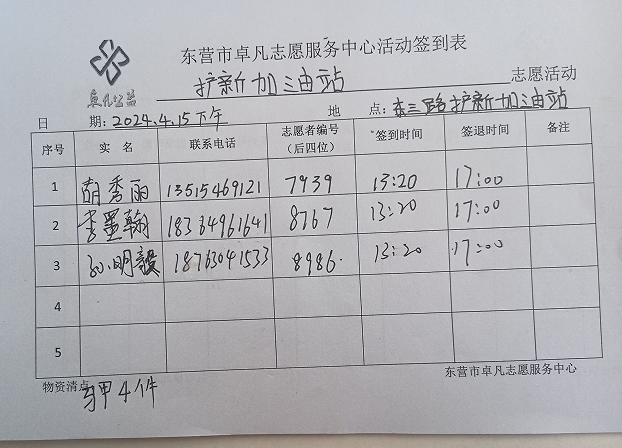 东营市卓凡志愿服务中心活动签到表
卓凡公益
护新加油站 志愿活动
日 期: 2024.4.15下午 地 点: 东三路护新加油站
序号 实 名 联系电话 志愿者编号（后四位） 签到时间 签退时间 备注
1 胡秀丽 13515469121 7939 13:20 17:00
2 李墨翰 18364961641 8767 13:20 17:00
3 孙明毅 18763041533 8986. 13:20 17:00
4
5
物资清点 东营市卓凡志愿服务中心
马甲4个件